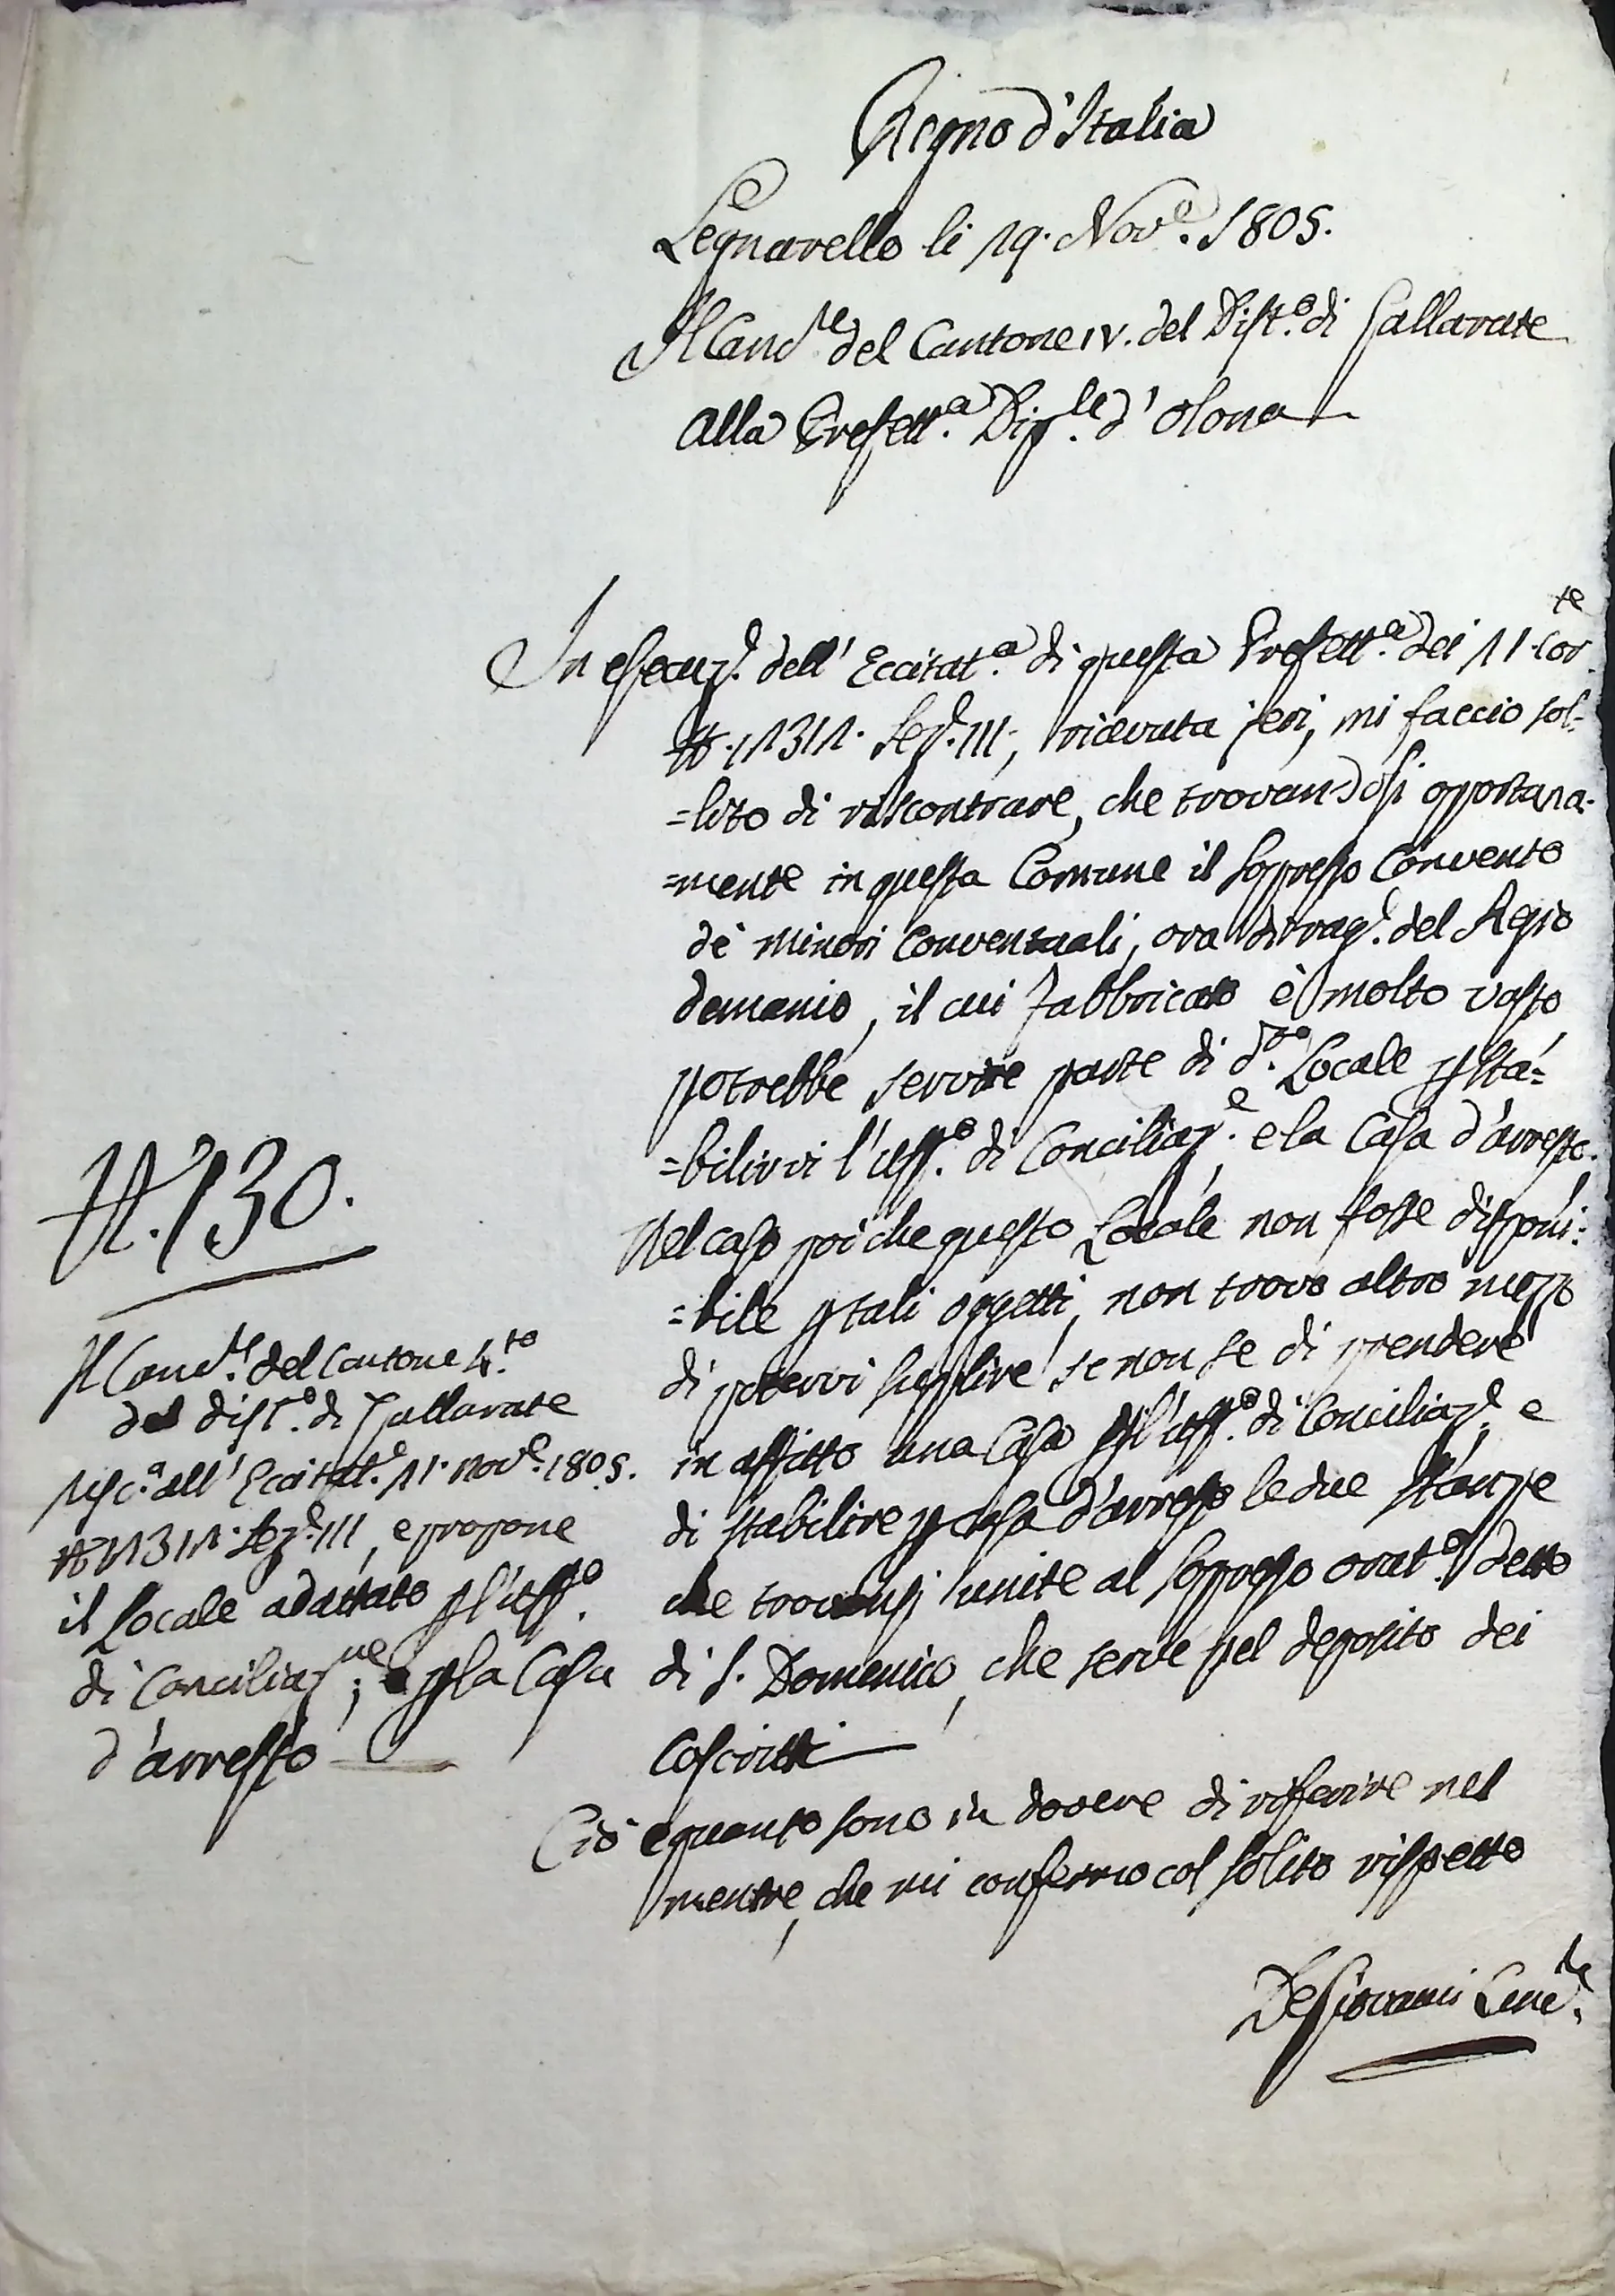 Regno d'Italia
Legnarello li 19. Nov.e 1805.
Il Canc.re del Cantone IV. del Dist.o di Gallarate
alla Prefett.a Dip.le d'Olona
In esecuz.e dell' Eccitat.a di questa Prefett.a dei 11. cor.te
N. 11311. Sez.e III, ricevuta jeri, mi faccio sol-
=lito di riscontrare, che trovandosi opportuna-
=mente in questa Comune il soppresso Convento
de' Minori Conventuali, ora di rag.e del Regio
demanio, il cui fabbricato è molto vasto
potrebbe servire parte di d.to Locale p stà=
=bilirvi l'uff.o di Conciliaz.e, e la Casa d'arresto.
Nel caso poi che questo Locale non fosse disponi:
=bile p tali oggetti, non trovo altro mezzo
di potervi supplire se non se di prendere
in affitto una Casa p l'uff.o di Conciliaz.e e
di stabilire p casa d'arresto le due stanze
che trovansi unite al soppresso orat.o detto
di S. Domenico, che serve pel deposito dei
Coscritti
Ciò è quanto sono in dovere di riferire nel
mentre, che mi confermo col solito rispetto
DeGiovanni Canc.re
N. 130.
Il Canc.re del Cantone 4.to
del dist.o di Gallarate
risc.a all' Eccitat.e 11. nov.e 1805.
N. 11311. Sez.e III, e propone
il Locale adattato p l'uff.o
di Conciliaz.ne; e p la Casa
d'arresto